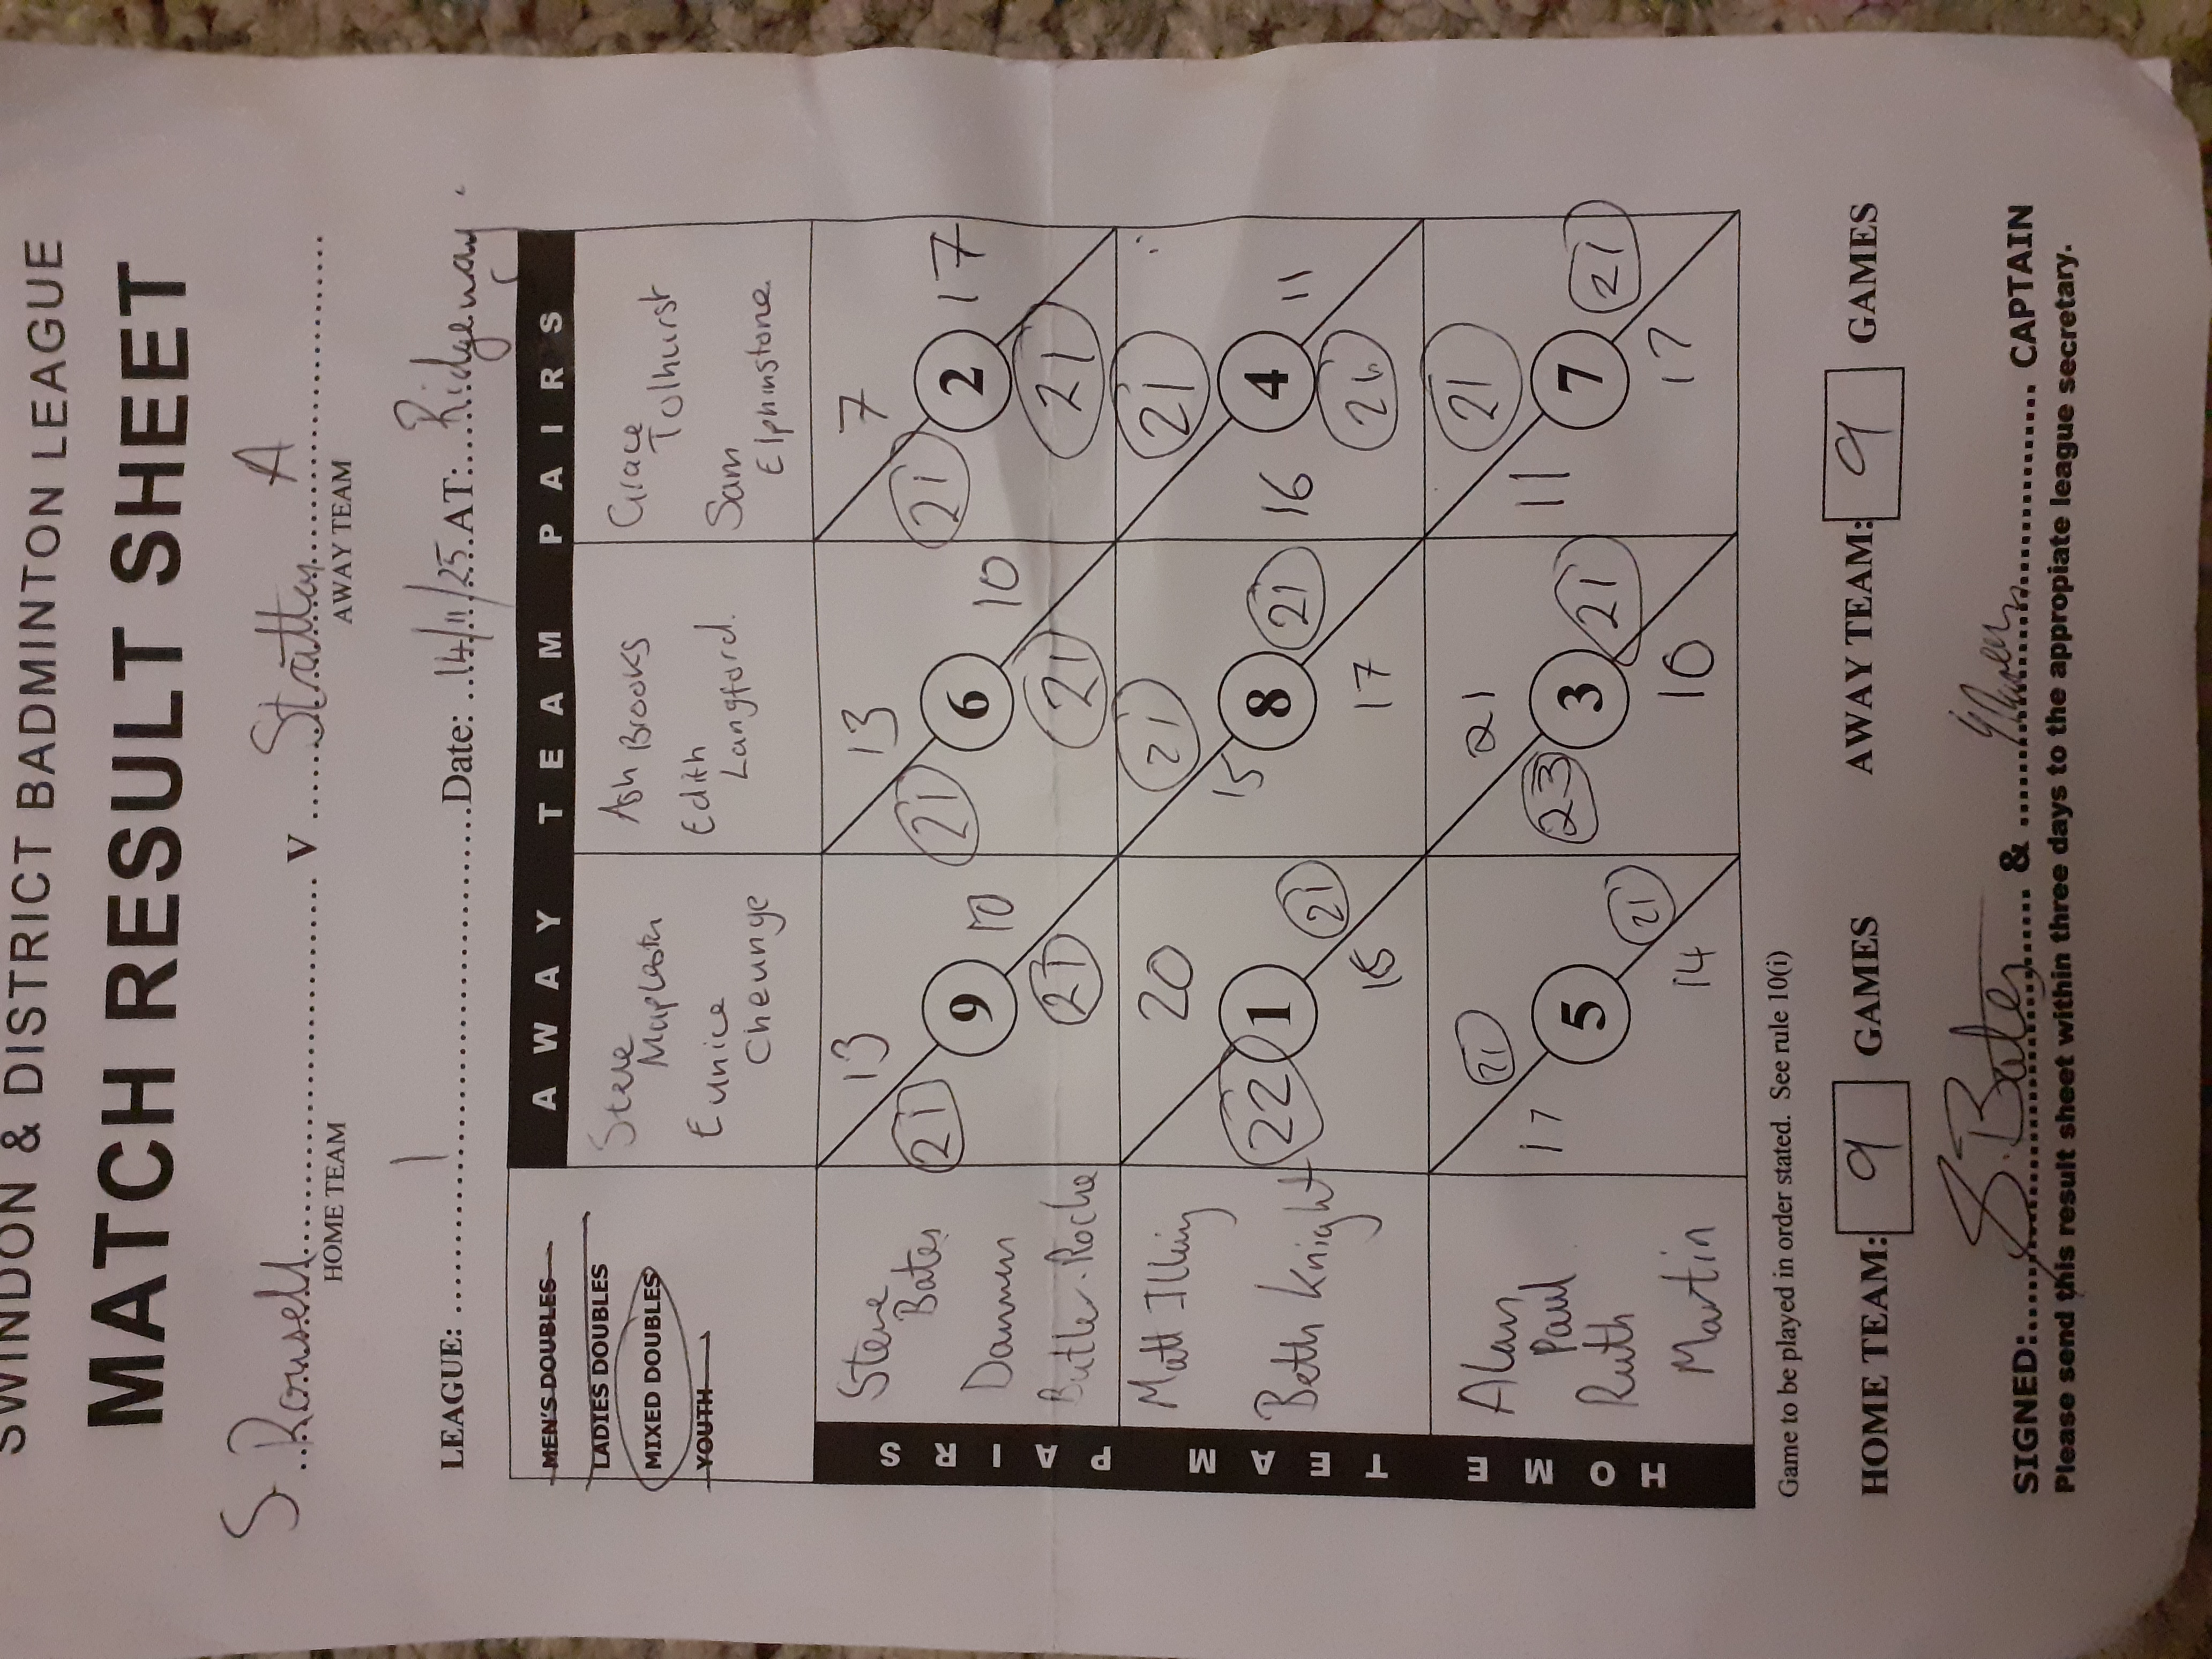 SWINDON & DISTRICT BADMINTON LEAGUE
MATCH RESULT SHEET
S. Rousell V Stratton A
HOME TEAM AWAY TEAM
LEAGUE: 1 Date: 14/11/25 AT: Ridgeway.
MEN'S DOUBLES
LADIES DOUBLES
MIXED DOUBLES
YOUTH
AWAY TEAM PAIRS
Steve
Eunice
Cheunge
Ash Brooks
Edith
Langford.
Grace
Tolhurst
Sam
Elphinstone
HOME TEAM PAIRS
Steve
Bates
Butler-Roche
13
21 9 10
21
13
21 6 10
21
7
21 2 17
21
Matt Illing
Beth Knight
20
22 1 21
15
21
15 8 21
17
21
16 4 11
Alan
Paul
Ruth
Martin
21
17 5 21
14
21
23 3 21
10
21
11 7 21
17
Game to be played in order stated. See rule 10(i)
HOME TEAM: 9 GAMES AWAY TEAM: 9 GAMES
SIGNED: S. Bates & CAPTAIN
Please send this result sheet within three days to the appropiate league secretary.